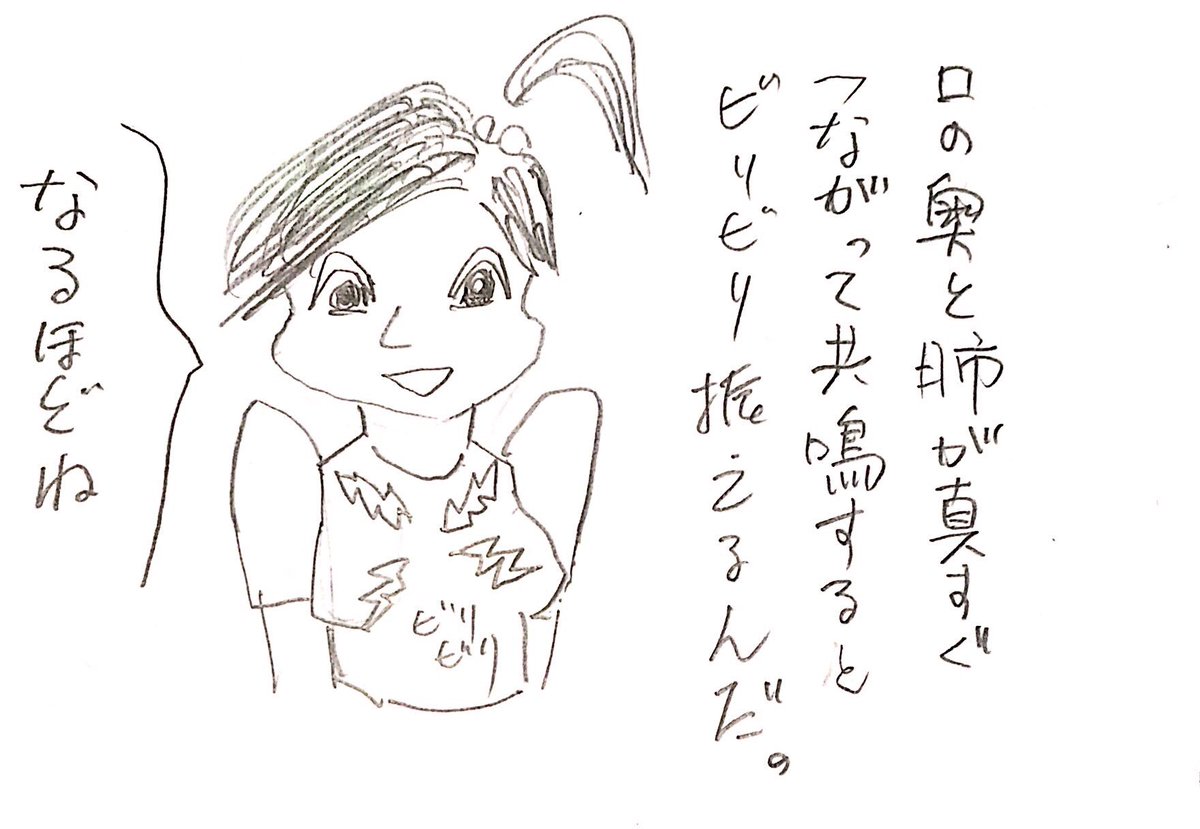 口の奥と肺が真すぐ
つながって共鳴すると
ビリビリ振えるんだ。
ビリ
ビリ
なるほどね